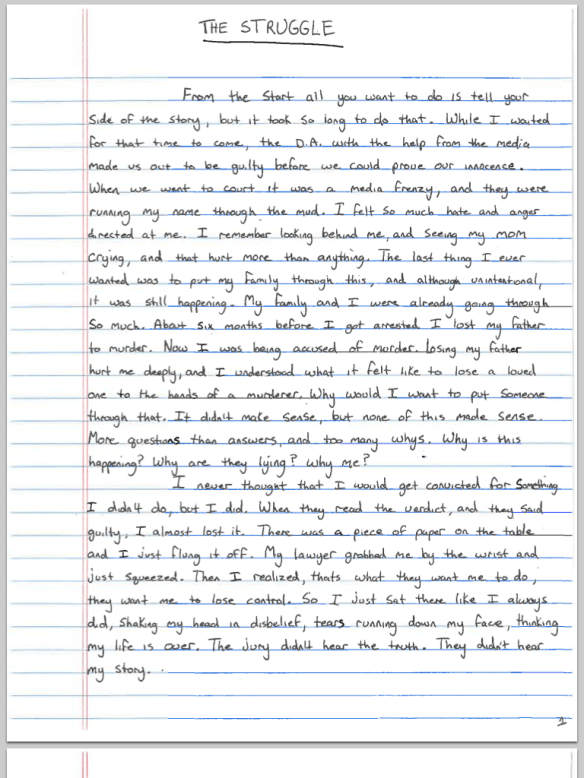 THE STRUGGLE
From the Start all you want to do is tell your
Side of the story, but it took so long to do that. While I waited
for that time to come, the D.A. with the help from the media
made us out to be guilty before we could prove our innocence.
When we went to court it was a media frenzy, and they were
running my name through the mud. I felt so much hate and anger
directed at me. I remember looking behind me, and seeing my mom
Crying, and that hurt more than anything. The last thing I ever
wanted was to put my family through this, and although unintentional,
it was still happening. My family and I were already going through
So much. About six months before I got arrested I lost my father
to murder. Now I was being accused of murder. Losing my father
hurt me deeply, and I understood what it felt like to lose a loved
one to the hands of a murderer. Why would I want to put Someone
through that. It didn't make sense, but none of this made sense.
More questions than answers, and too many whys. Why is this
happening? Why are they lying? Why me?
I never thought that I would get convicted for Something
I didn't do, but I did. When they read the verdict, and they said
guilty, I almost lost it. There was a piece of paper on the table
and I just flung it off. My lawyer grabbed me by the wrist and
just squeezed. Then I realized, thats what they want me to do,
they want me to lose control. So I just sat there like I always
did, Shaking my head in disbelief, tears running down my face, thinking
my life is over. The jury didn't hear the truth. They didn't hear
my story.
1